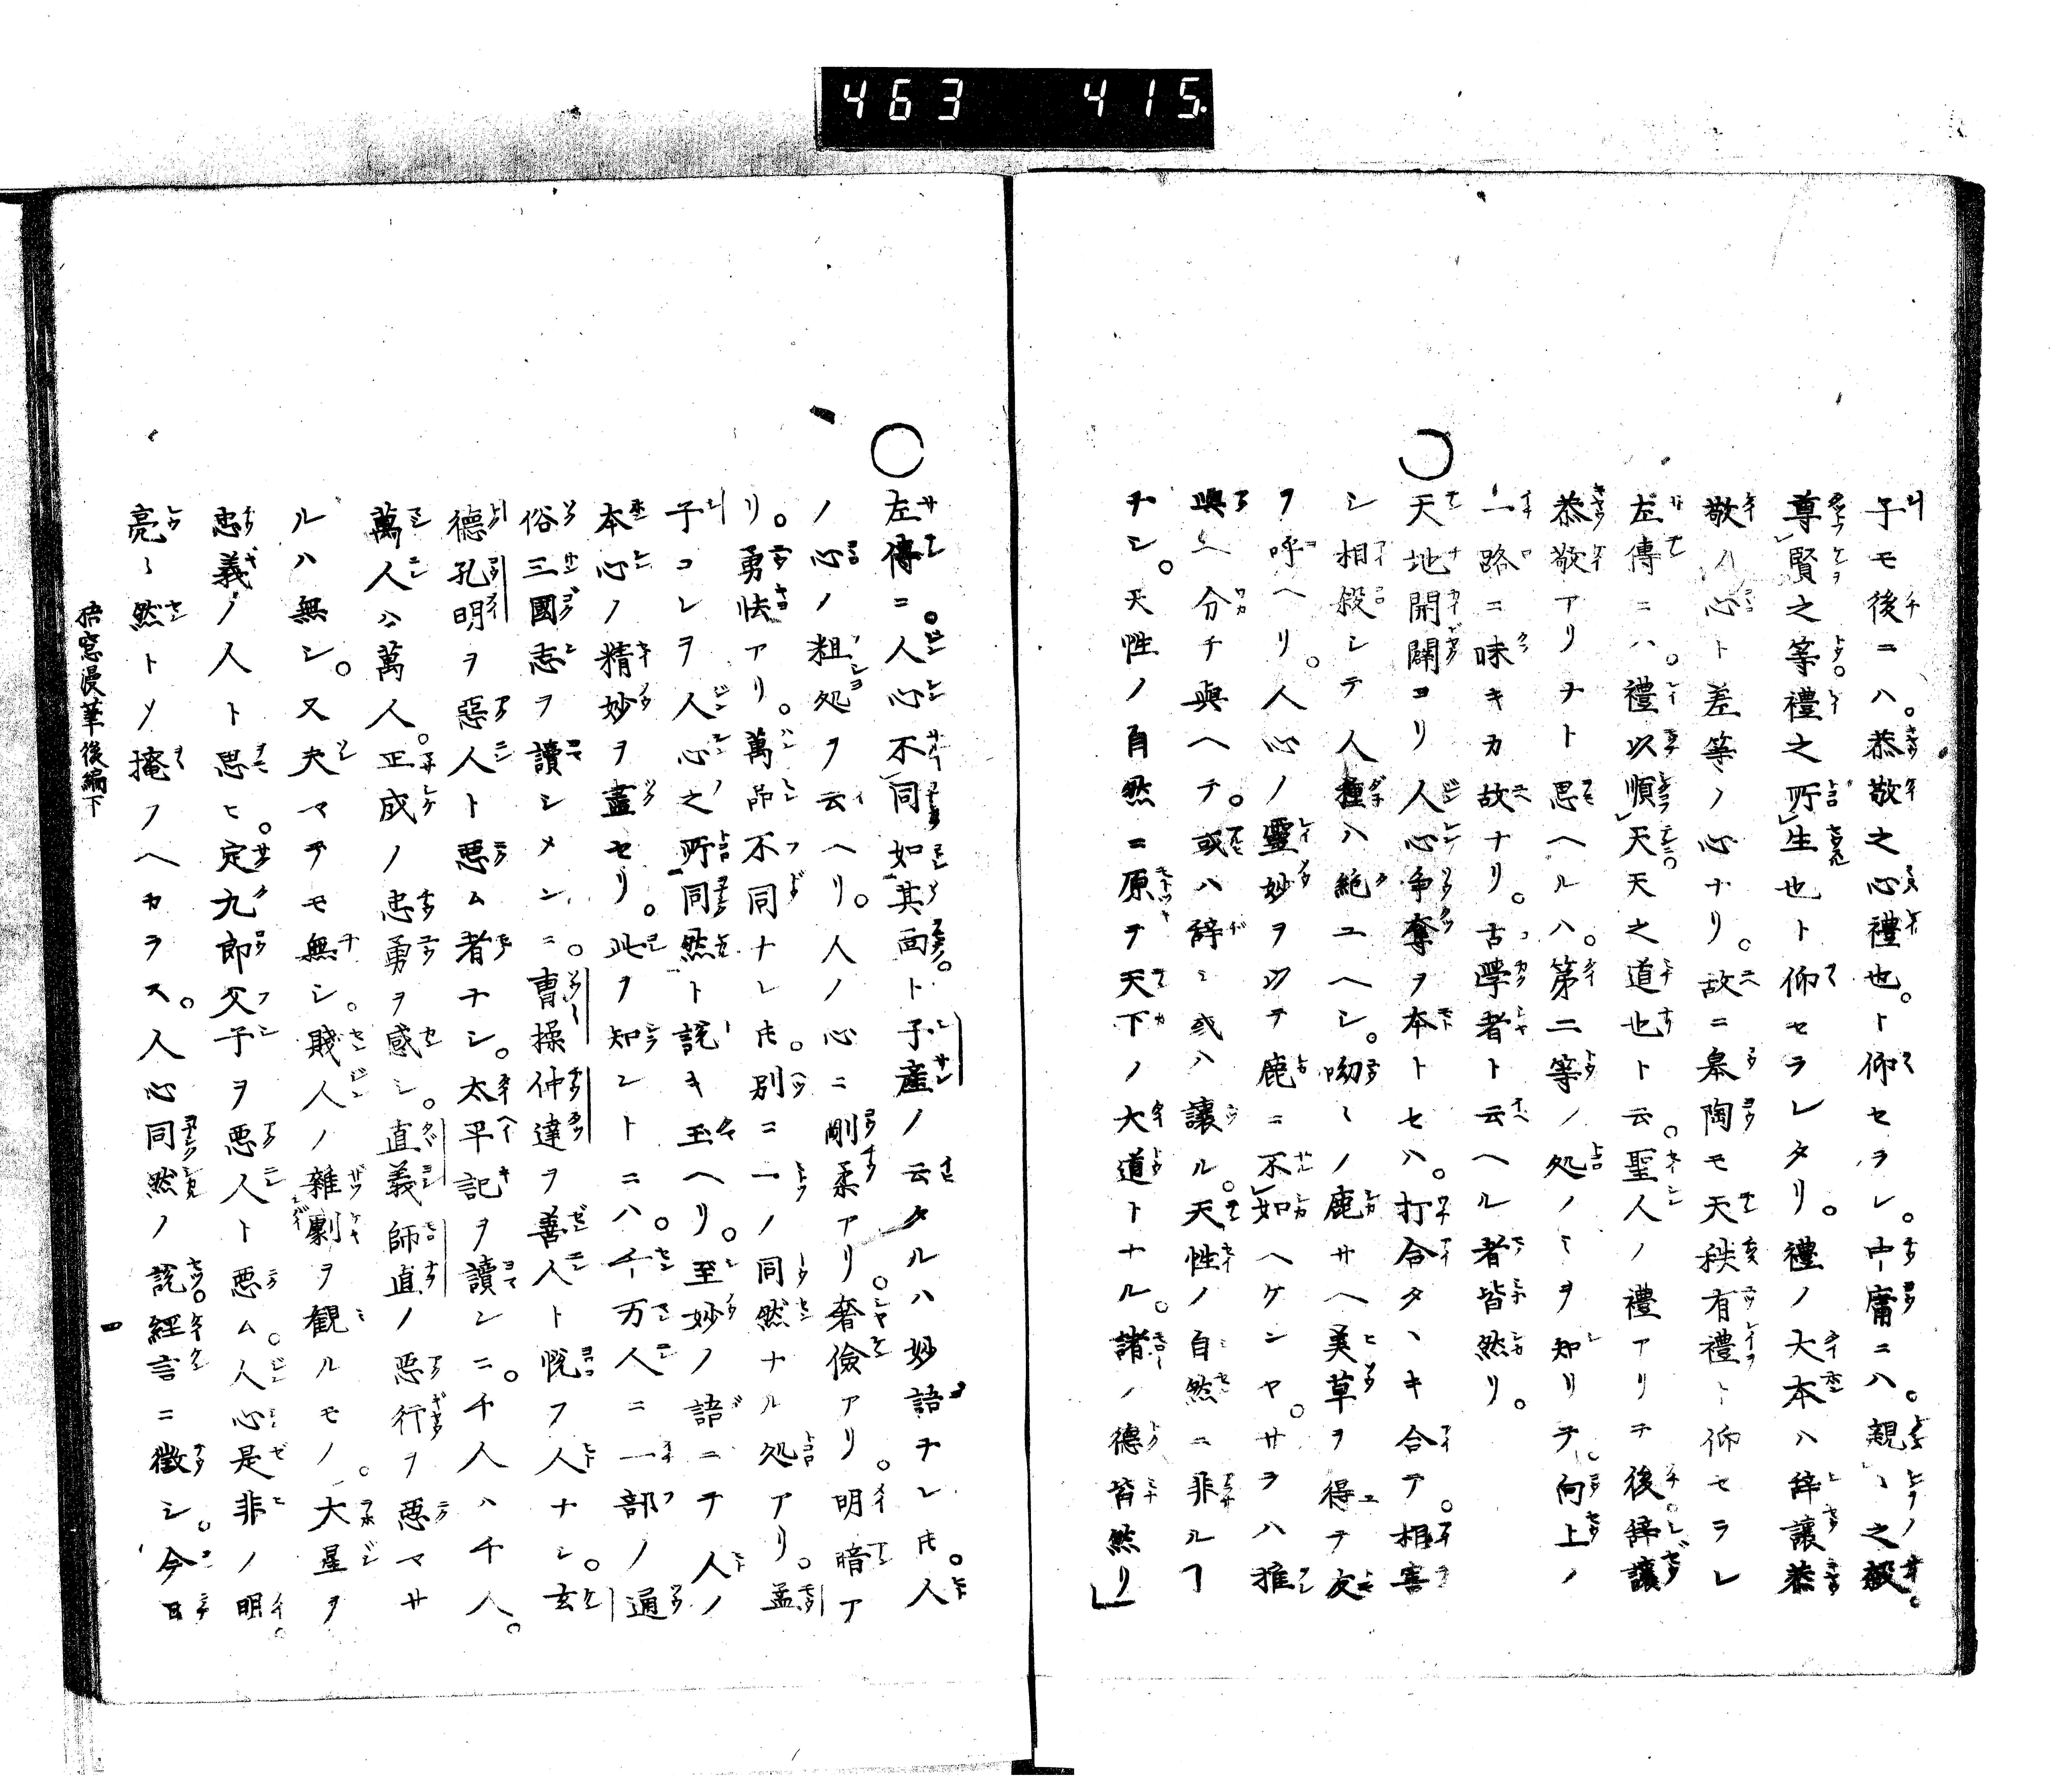 463 415
子モ後ニハ。恭敬之心禮也。ト仰セラレ。中庸ニハ。親々之殺。
尊賢之等禮之所生也ト仰セラレタリ。禮ノ大本ハ辞讓恭
敬ハ心ト差等ノ心ナリ。故ニ皋陶モ天秩有禮ト仰セラレ
左傳ニハ。禮以順天天之道也ト云。聖人ノ禮アリテ後辞讓
恭敬アリナト思ヘルハ。第二等ノ処ノミヲ知リテ。向上ノ
一路ニ昧キカ故ナリ。古學者ト云ヘル者皆然リ。
○天地開闢ヨリ人心争奪ヲ本トセハ。打合タヽキ合テ。相害
シ相殺シテ人種ハ絶ユヘシ。呦々ノ鹿サヘ美草ヲ得テ友
ヲ呼ヘリ。人心ノ靈妙ヲ以テ鹿ニ不如ヘケンヤ。サヲハ推
與ヘ分チ與ヘテ。或ハ辞ミ或ハ讓ル。天性ノ自然ニ非ルヿ
ナシ。天性ノ自然ニ原テ天下ノ大道トナル。諸ノ德皆然リ
○左傳ニ。人心不同如其面。ト子産ノ云タルハ妙語ナレ𪜈。人
ノ心ノ粗処ヲ云ヘリ。人ノ心ニ剛柔アリ。奢儉アリ。明暗ア
リ。勇怯アリ。萬品不同ナレ𪜈。別ニ一ノ同然ナル処アリ。孟
子コレヲ人心之所同然ト説キ玉ヘリ。至妙ノ語ニテ人ノ
本心ノ精妙ヲ盡セリ。此ヲ知ントニハ。千万人ニ一部ノ通
俗三國志ヲ讀シメンニ。曹操仲達ヲ善人ト悦フ人ナシ。玄
德孔明ヲ惡人ト悪ム者ナシ。太平記ヲ讀ンニ。千人ハ千人。
萬人ハ萬人。正成ノ忠勇ヲ感シ。直義師直ノ悪行ヲ悪マサ
ルハ無シ。又夫マテモ無シ。賤人ノ雜劇ヲ観ルモノ。大星ヲ
忠義ノ人ト思ヒ。定九郎父子ヲ悪人ト悪ム。人心是非ノ明。
亮々然トソ掩フヘカラス。人心同然ノ説。經言ニ徴シ。今日
梧窓漫筆後編下